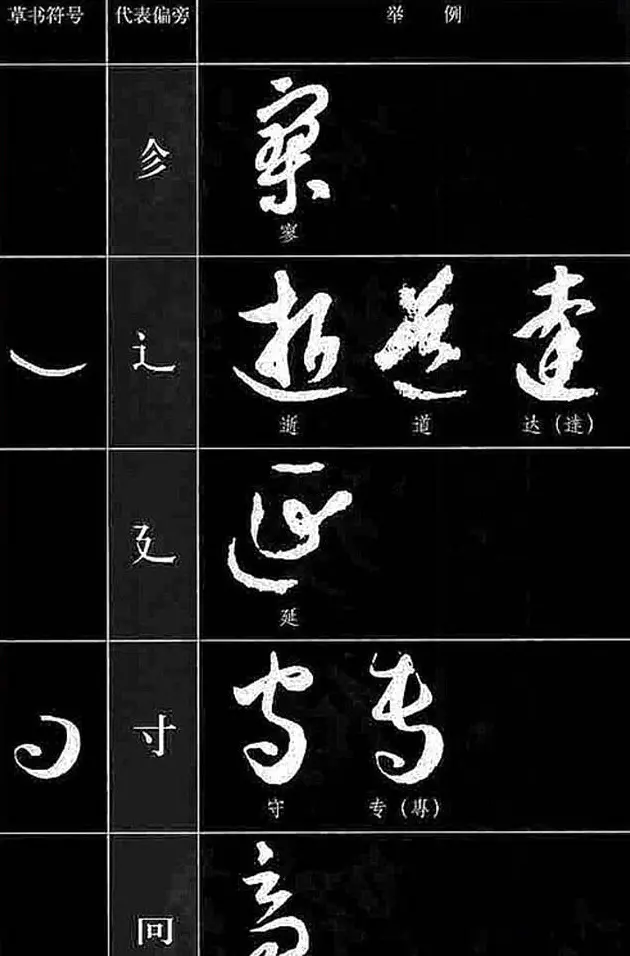 草书符号 代表偏旁 举 例
㐱
寥
辶
逝 道 达（達）
廴
延
寸
守 专（專）
冋